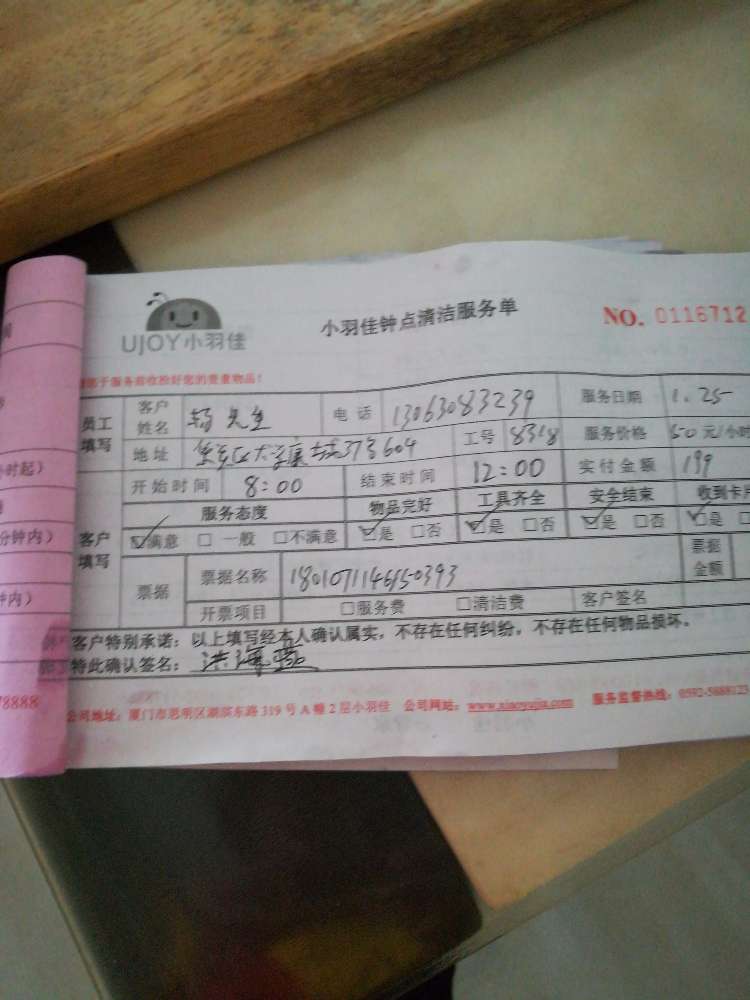 UJOY小羽佳
小羽佳钟点清洁服务单
NO. 0116712
于服务前收拾好您的贵重物品！
员工填写 客户姓名 杨先生 电话 13063083239 服务日期 1.25
地址 373604 工号 8318 服务价格 50元/小时
客户填写 开始时间 8:00 结束时间 12:00 实付金额 199
服务态度 物品完好 工具齐全 安全结束 收到卡片
☑满意 □一般 □不满意 ☑是 □否 ☑是 □否 ☑是 □否 ☑是
票据 票据名称 1801071146150393 票据金额
开票项目 □服务费 □清洁费 客户签名
客户特别承诺：以上填写经本人确认属实，不存在任何纠纷，不存在任何物品损坏。
特此确认签名：洪海燕
公司地址：厦门市思明区湖滨东路319号A幢2层小羽佳 公司网站：www.xiaoyujia.com 服务监督热线：0592-5888123
时起）
分钟内）
钟内）
78888